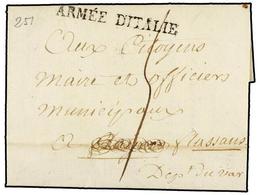 251
ARMÉE D'ITALIE
Aux Citoyens
Maire et officiers
Municipaux
A Flassans
Dept. du var